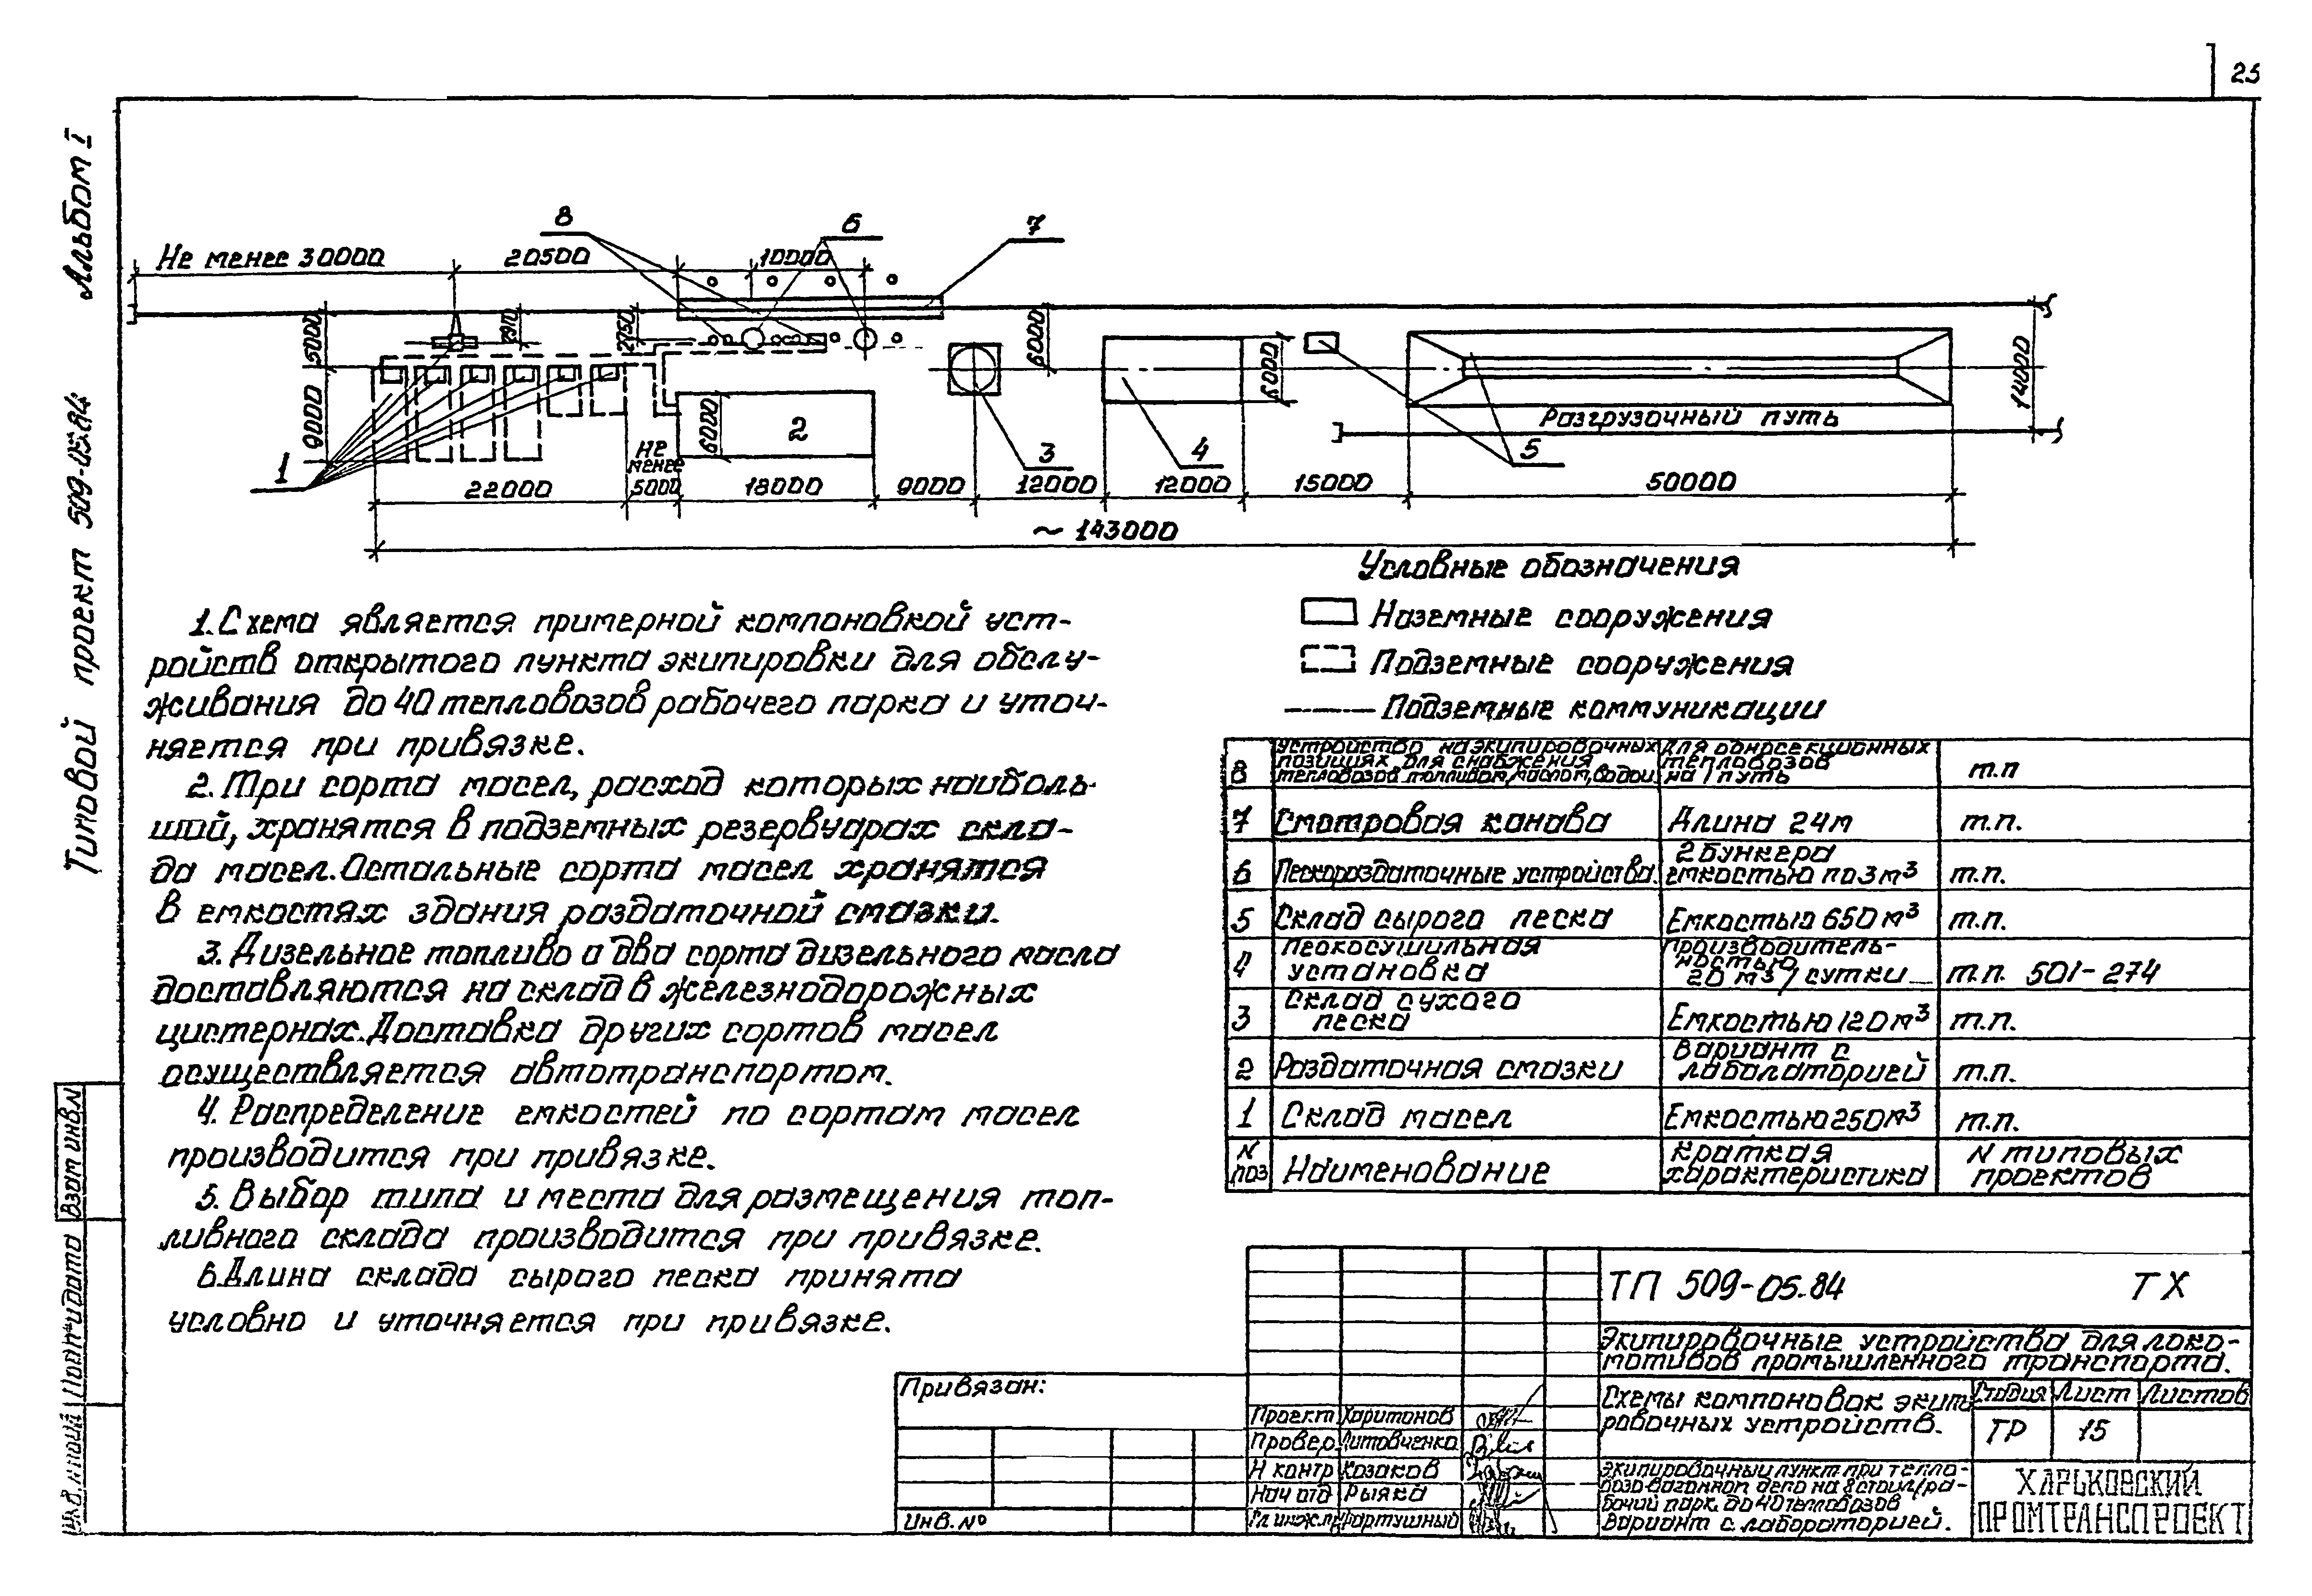 25
Альбом I
Типовой проект 509-05.84
8
6
7
Не менее 30000
20500
10000
5000
2910
2750
6000
14000
9000
6000
2
6000
Разгрузочный путь
1
3
4
5
22000
не
менее
5000
18000
9000
12000
12000
15000
50000
~ 143000
Условные обозначения
Наземные сооружения
Подземные сооружения
Подземные коммуникации
1. Схема является примерной компоновкой уст-
ройств открытого пункта экипировки для обслу-
живания до 40 тепловозов рабочего парка и уточ-
няется при привязке.
2. Три сорта масел, расход которых наиболь-
ший, хранятся в подземных резервуарах скла-
да масел. Остальные сорта масел хранятся
в емкостях здания раздаточной смазки.
3. Дизельное топливо а два сорта дизельного масла
доставляются на склад в железнодорожных
цистернах. Доставка других сортов масел
осуществляется автотранспортом.
4. Распределение емкостей по сортам масел
производится при привязке.
5. Выбор типа и места для размещения топ-
ливного склада производится при привязке.
6. Длина склада сырого песка принята
условно и уточняется при привязке.
8 Устройство на экипировочных позициях для снабжения тепловозов топливом, маслом, водой Для односекционных тепловозов на 1 путь т.п
7 Смотровая канава Длина 24м т.п.
6 Пескораздаточные устройства. 2 бункера емкостью по 3 м³ т.п.
5 Склад сырого песка Емкостью 650 м³ т.п.
4 Пескосушильная установка Производительностью 20 м³/сутки т.п. 501-274
3 Склад сухого песка Емкостью 120 м³ т.п.
2 Раздаточная смазки Вариант с лабалаторией т.п.
1 Склад масел Емкостью 250 м³ т.п.
N поз Наименование Краткая характеристика N типовых проектов
ТП 509-05.84 ТХ
Экипировочные устройства для локо-
мотивов промышленного транспорта.
Схемы компоновок экипи
ровочных устройств.
Стадия Лист Листов
ТР 15
Экипировочный пункт при тепло-
возо-вагонном депо на 8 стоил/ра-
бочий парк до 40 тепловозов
Вариант с лабораторией.
ХАРЬКОВСКИЙ
ПРОМТРАНСПРОЕКТ
Привязан:
Инв. №
Проект Харитонов
Провер. Литовченко
Н контр Казаков
Нач отд Рыяка
Гл инж.пр Фартушный
Взам инв.N
Подп. и дата
Инв. N подл